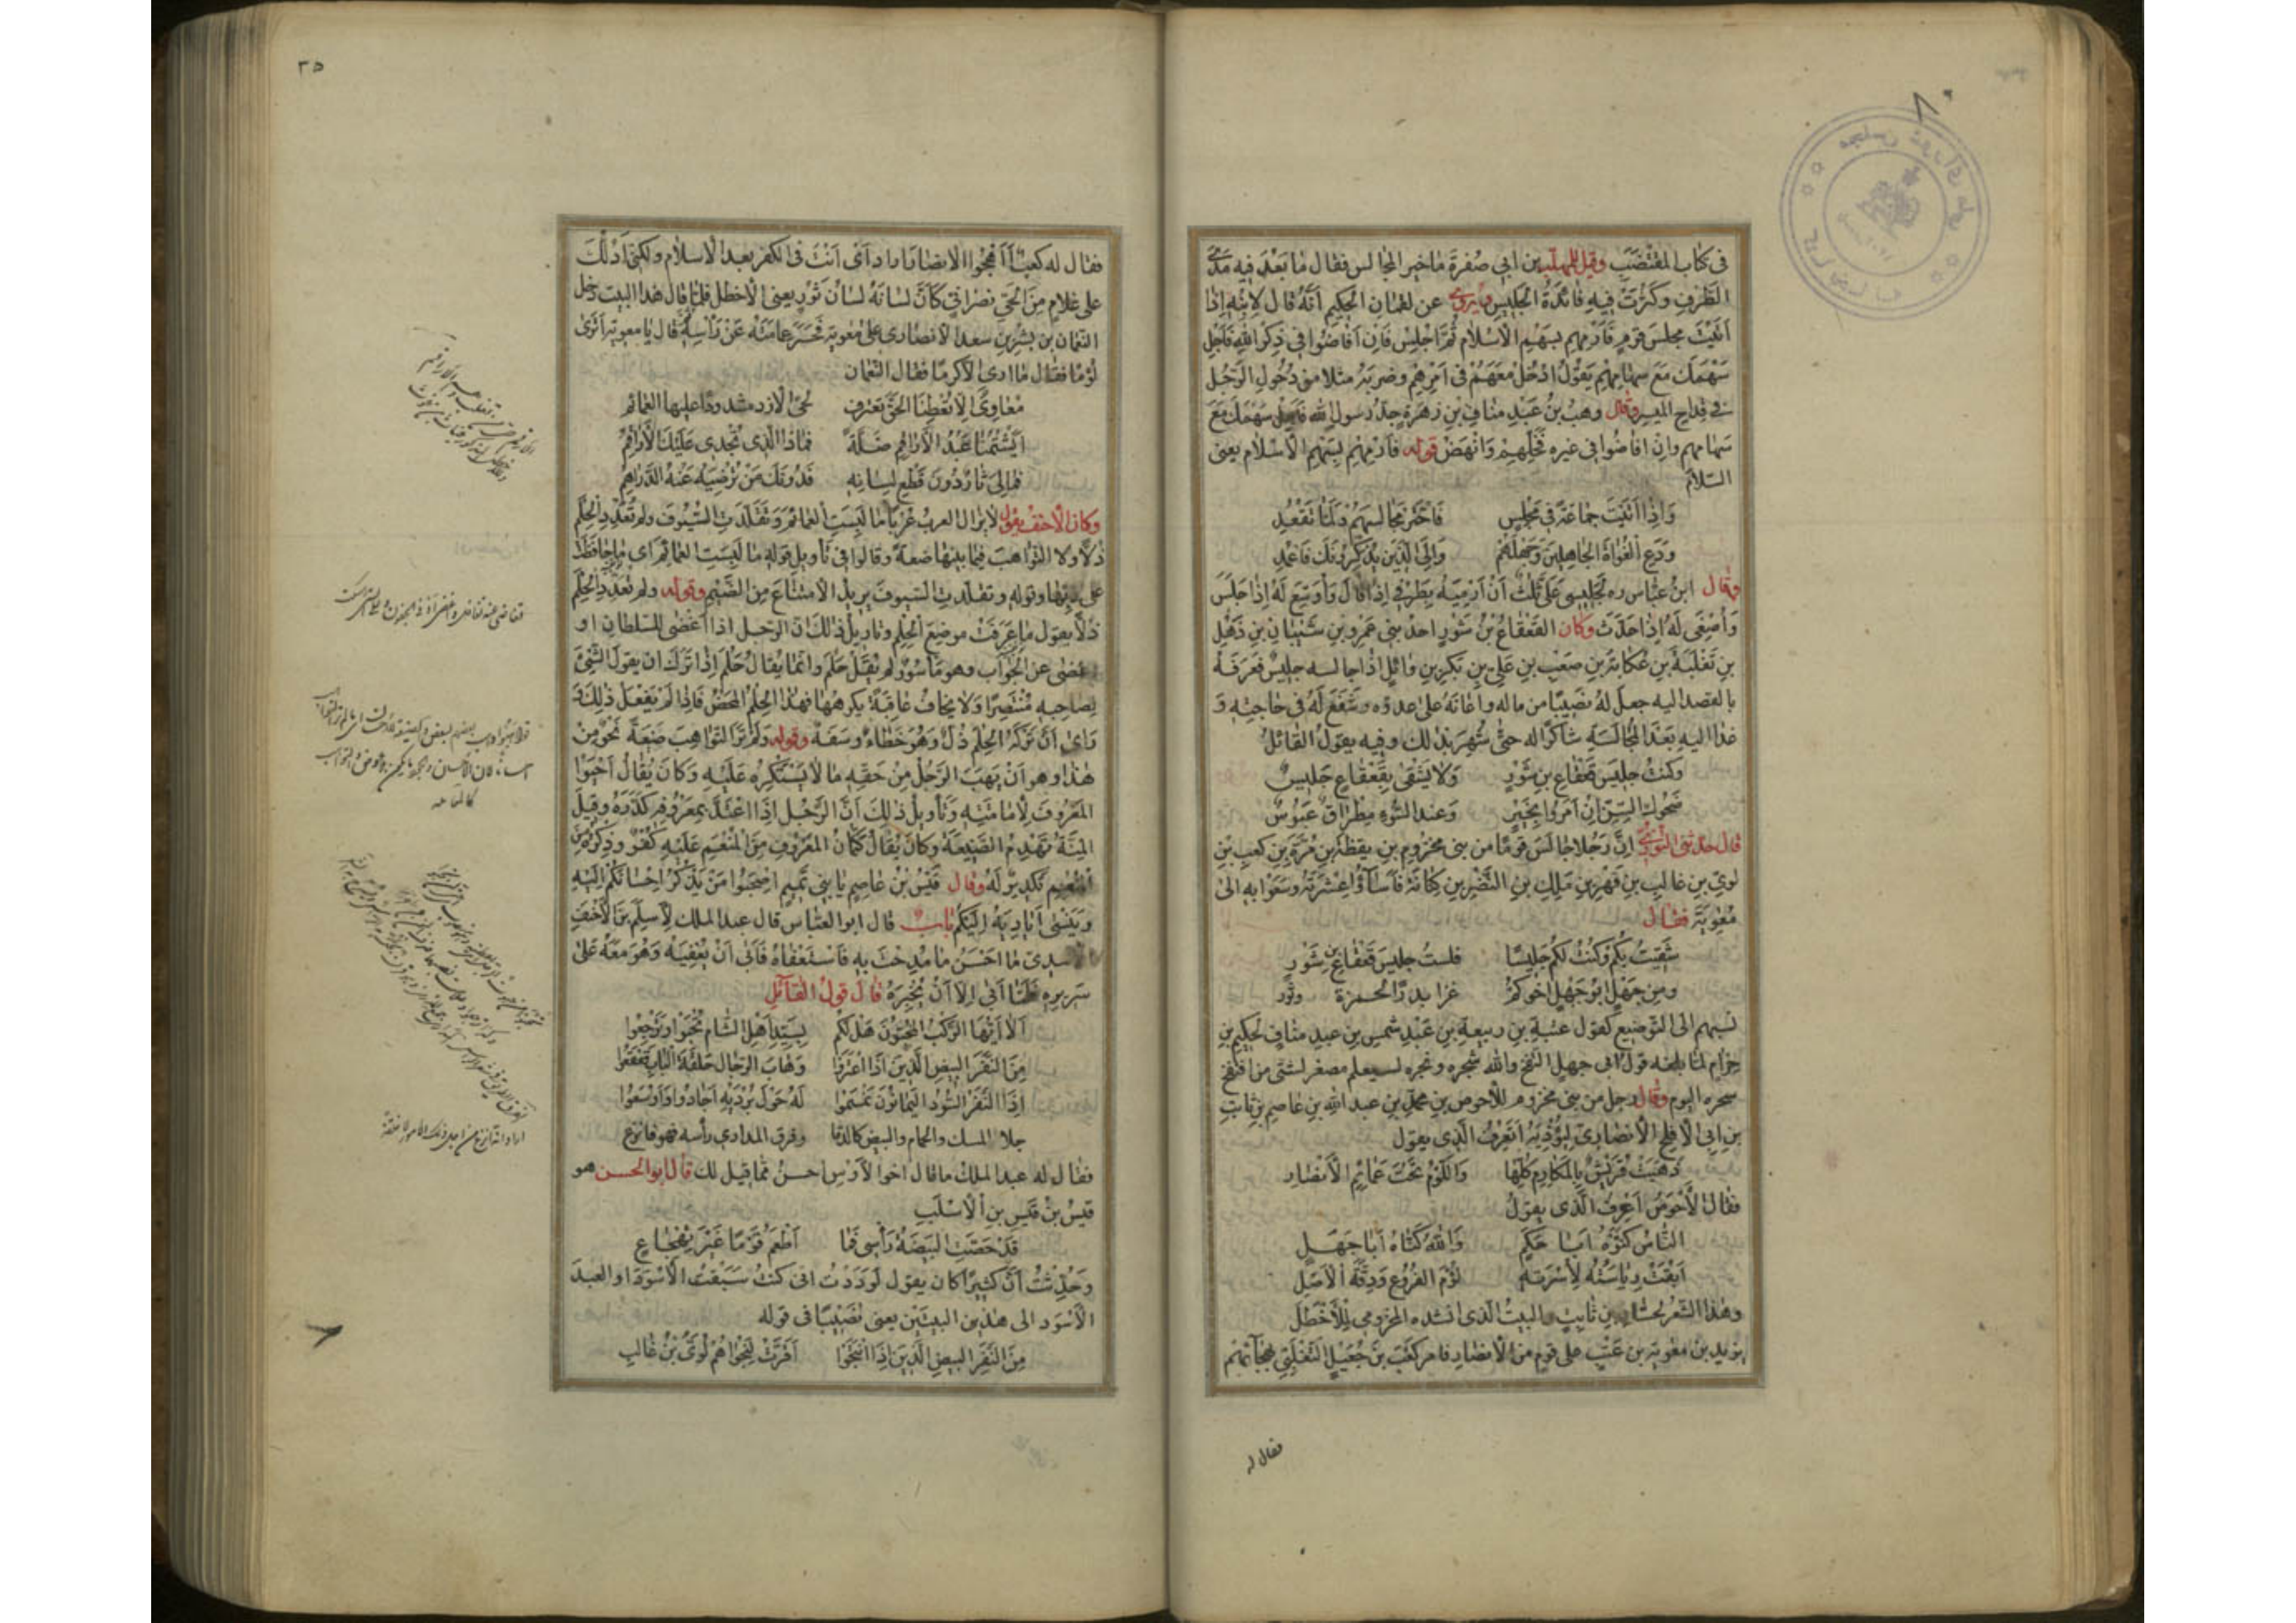 في كتاب المقتضب وقيل للمهلب بن ابي صفرة ما خير المجالس فقال ما بعد فيه مدى
الطرف وكثرت فيه فائدة الجليس ويروى عن لقمان الحكيم انه قال لابنه اذا
اتيت مجلس قوم فارمهم بسهم الاسلام ثم اجلس فان افاضوا في ذكر الله فاجل
سهمك مع سهامهم يقول ادخل معهم في امرهم وضربه مثلا من دخول الرجل
في قداح الميسر وقال وهب بن عبد مناف بن زهرة جد رسول الله سهمك مع
سهامهم وان افاضوا في غيره فخلهم وانهض قوله فارمهم بسهم الاسلام يعني
السلام
واذا اتيت جماعة في مجلس فاختر مجالسهم ولما تقعد
ودع الغواة الجاهلين وجهلهم والى الذين يذكرونك فاعمد
وقال ابن عباس ره لجليسي على ثلث ان ارميه بطرفي اذا اقبل واوسع له اذا جلس
واصغى له اذا حدث وكان القعقاع بن شور احد بني عمرو بن شيبان بن ذهل
بن ثعلبة بن عكابة بن صعب بن علي بن بكر بن وائل اذا جالسه جليس فعرفه
بالقصد اليه جعل له نصيبا من ماله واعانه على عدوه وشفع له في حاجته و
غدا اليه بعد المجالسة شاكرا له حتى شهر بذلك وفيه يقول القائل
وكنت جليس قعقاع بن شور ولا يشقى بقعقاع جليس
ضحوك السن ان امروا بخير وعند السوء مطراق عبوس
قال حدثني التوزي ان رجلا جالس قوما من بني مخزوم بن يقظة بن مرة بن كعب بن
لوي بن غالب بن فهر بن ملك بن النضر بن كنانة فاساؤا عشرته وسعوا به الى
معوية فقال
شقيت بكم وكنت لكم جليسا فلست جليس قعقاع بن شور
ومن جهل ابو جهل اخوكم غزا بدرا بمجمرة وتور
نسبهم الى التوضيع كقول عتبة بن ربيعة بن عبد شمس بن عبد مناف لحكيم بن
حزام لما بلغه قول ابي جهل انتفخ والله سحره سيعلم مصفر استه من انتفخ
سحره اليوم وقال رجل من بني مخزوم للاحوص بن محمد بن عبد الله بن عاصم بن ثابت
بن ابي الافلح الانصاري ليؤذيه اتعرف الذي يقول
ذهبت قريش بالمكارم كلها واللؤم تحت عمائم الانصار
فقال الاحوص اعرف الذي يقول
الناس كنوه ابا حكم والله كناه ابا جهل
ابقت رياسته لاسرته لؤم الفروع ودقة الاصل
وهذا الشعر لحسان بن ثابت والبيت الذي انشده المخزومي للاخطل
يزيد بن معوية بن عتب على قوم من الانصار فامر كعب بن جعيل التغلبي بهجائهم
فقال له
٣٥
فقال له كعب أأهجوا الانصار ارادي انت في الكفر بعد الاسلام ولكني ادلك
على غلام من الحي نصراني كان لسانه لسان ثور يعني الاخطل فلما قال هذا البيت دخل
النعمان بن بشير بن سعد الانصاري على معوية فحسر عمامته عن راسه ثم قال يا معوية اترى
لؤما فقال ما ارى الا كرما فقال النعمان
معاوي الا تعطنا الحق تعترف لحى الازد مشدودا عليها العمائم
ايشتمنا عبد الاراقم ضلة فماذا الذي تجدي عليك الاراقم
فما لي ثار دون قطع لسانه فدونك من ترضيه عنه الدراهم
وكان الاحنف يقول لا يزال العرب عربا ما لبست العمائم وتقلدت السيوف ولم تعدد الحلم
ذلا ولا التواهب فيما بينها ضعة وقالوا في تاويل قوله ما لبست العمائم اى ما حافظت
على زيها وقوله وتقلدت السيوف يريد الامتناع من الضيم وقوله ولم تعدد الحلم
ذلا يقول ما عرفت موضع الحلم وتاويل ذلك ان الرجل اذا اغضى للسلطان او
اغضى عن الجواب وهو ماسور لم يقل حلم وانما يقال حلم اذا ترك ان يقول الشيء
لصاحبه منتصرا ولا يخاف عاقبة يكرهها فهذا الحلم المحض فاذا لم يفعل ذلك و
راى ان تركه الحلم ذل وهو خطاء وسفه وقوله ولم تر التواهب ضعة نحو من
هذا وهو ان يهب الرجل من حقه ما لا يستكره عليه وكان يقال احيوا
المعروف بامانته وتاويل ذلك ان الرجل اذا اعتد بمعروفه كدره وقيل
المنة تهدم الصنيعة وكان يقال كتمان المعروف من المنعم عليه كفر وذكره من
المنعم تكدير له وقال قيس بن عاصم يا بني تميم اصحبوا من يذكر احسانكم اليه
وينسى اياديه اليكم باب قال ابو العباس قال عبد الملك لاسيلم بن الاحنف
الاسدي ما احسن ما مدحت به فاستعفاه فابى ان يعفيه وهو معه على
سريره فلما ابى الا ان يخبره قال قول القائل
الا ايها الركب المخبون هل لكم بسيد اهل الشام تحبوا وترجعوا
من النفر البيض الذين اذا اعتزوا وهاب الرجال حلقة الباب قعقعوا
اذا النفر السود اليمانون نمنموا له حول برديه اجادوا واوسعوا
جلا المسك والحمام والبيض كالدمى وفرق المدارى راسه فهو انزع
فقال له عبد الملك ما قال اخو الاوس احسن مما قيل لك قال ابو الحسن هو
قيس بن قيس بن الاسلت
قد حصت البيضة راسي فما اطعم نوما غير تهجاع
وحدثت ان كثيرا كان يقول لوددت انى كنت سبقت الاسود او العبد
الاسود الى هذين البيتين يعني نصيبا في قوله
من النفر البيض الذين اذا انتجوا اقرت لنجواهم لوى بن غالب